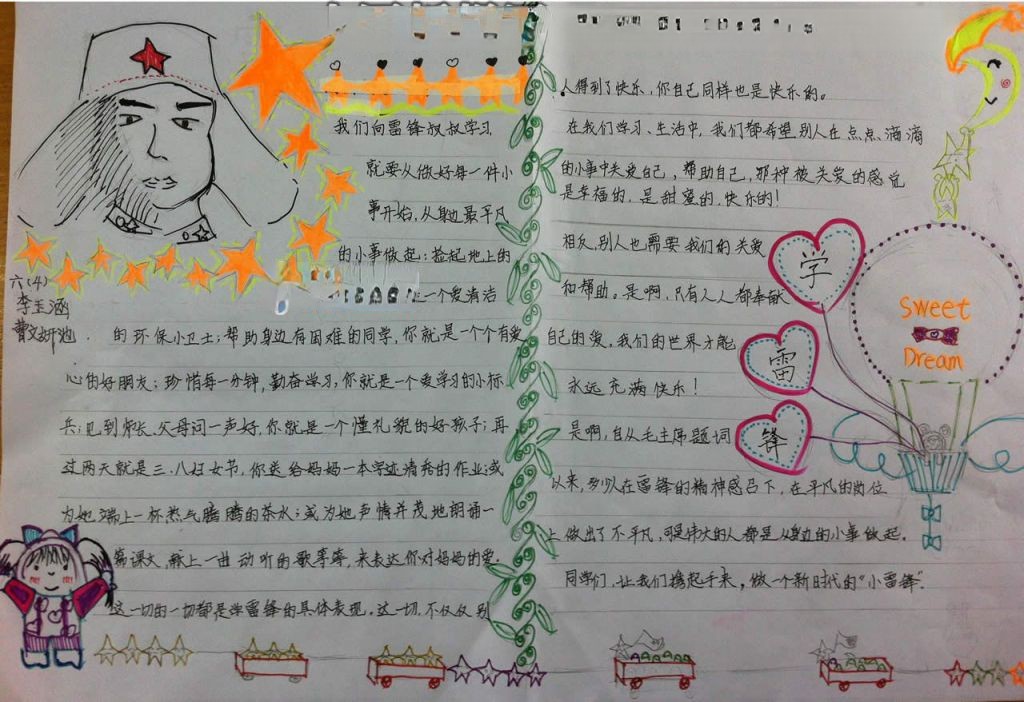 我们向雷锋叔叔学习
就要从做好每一件小
事开始,从身边最平凡
的小事做起:捡起地上的
是一个爱清洁
六(4)
李玉涵
的环保小卫士;帮助身边有困难的同学,你就是一个个有爱
心的好朋友;珍惜每一分钟,勤奋学习,你就是一个爱学习的小标
兵;见到师长、父母问一声好,你就是一个懂礼貌的好孩子;再
过两天就是三.八妇女节,你送给妈妈一本字迹清秀的作业;或
为她端上一杯热气腾腾的茶水;或为她声情并茂地朗诵一
篇课文,献上一曲动听的歌等等,来表达你对妈妈的爱.
这一切的一切都是学雷锋的具体表现,这一切,不仅仅别
人得到了快乐,你自己同样也是快乐的。
在我们学习、生活中,我们都希望别人在点点滴滴
的小事中关爱自己,帮助自己,那种被关爱的感觉
是幸福的,是甜蜜的,快乐的!
相反,别人也需要我们的关爱
和帮助。是啊,只有人人都奉献
自己的爱,我们的世界才能
永远充满快乐!
是啊,自从毛主席题词
以来,多少人在雷锋的精神感召下,在平凡的岗位
上做出了不平凡,可是伟大的人都是从身边的小事做起.
同学们,让我们携起手来,做一个新时代的"小雷锋".
学
雷
锋
Sweet
Dream